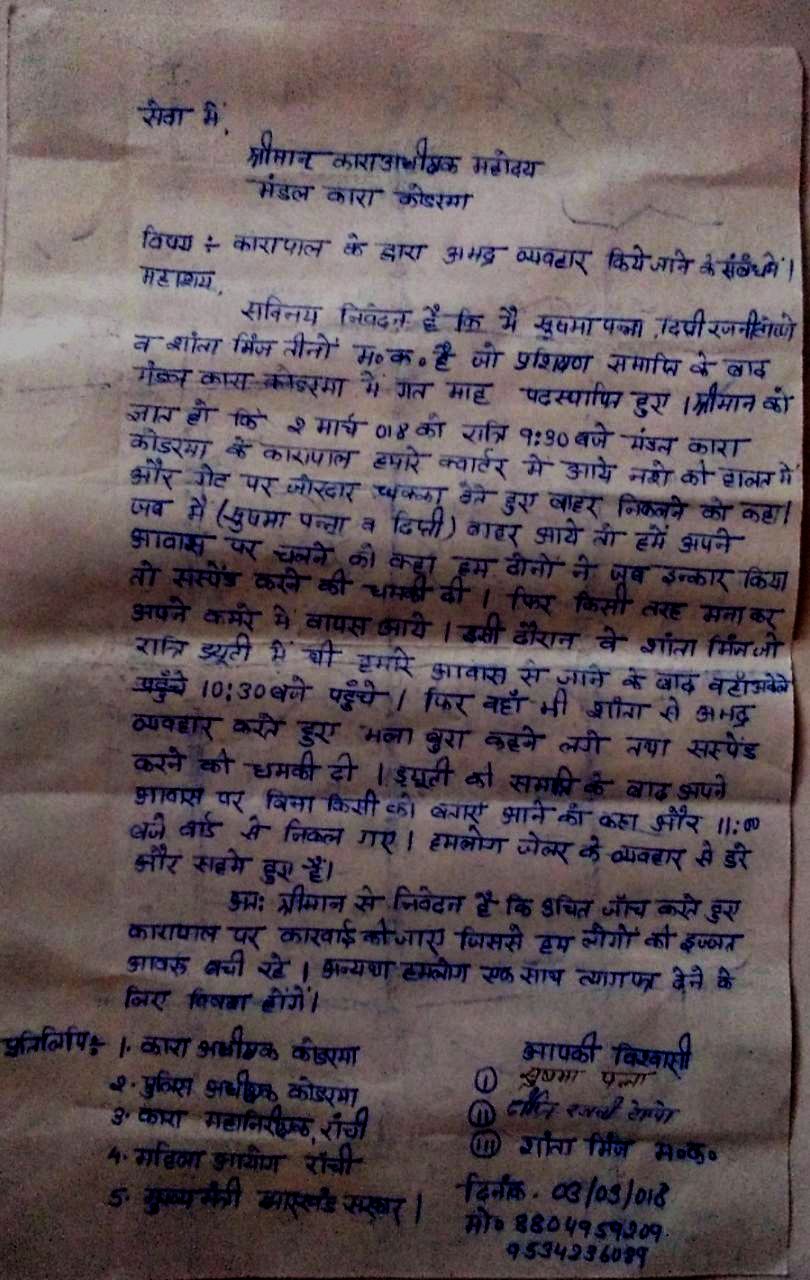 सेवा में,
श्रीमान काराअधीक्षक महोदय
मंडल कारा कोडरमा
विषय :- कारापाल के द्वारा अभद्र व्यवहार किये जाने के संबंध में।
महाशय,
सविनय निवेदन है कि मैं सुषमा पन्ना, दिप्ती रजनी टोप्पो
व शांता मिंज तीनो म०क० है जो प्रशिक्षण समाप्ति के बाद
मंडल कारा कोडरमा में गत माह पदस्थापित हुए। श्रीमान को
ज्ञात हो कि 2 मार्च 018 को रात्रि 9:30 बजे मंडल कारा
कोडरमा के कारापाल हमारे क्वार्टर में आये नशे की हालत में
और गेट पर जोरदार धक्का देते हुए बाहर निकलने को कहा।
जब मैं (सुषमा पन्ना व दिप्ती) बाहर आये तो हमें अपने
आवास पर चलने को कहा हम दोनों ने जब इन्कार किया
तो सस्पेंड करने की धमकी दी। फिर किसी तरह मना कर
अपने कमरे में वापस आये। इसी दौरान वे शांता मिंज जो
रात्रि ड्यूटी में थी हमारे आवास से जाने के बाद वहाँ अकेले
पहुँचे 10:30 बजे पहुँचे। फिर वहाँ भी शांता से अभद्र
व्यवहार करते हुए भला बुरा कहने लगे तथा सस्पेंड
करने की धमकी दी। ड्यूटी की समाप्ति के बाद अपने
आवास पर बिना किसी को बताए आने को कहा और 11:00
बजे वार्ड से निकल गए। हमलोग जेलर के व्यवहार से डरे
और सहमे हुए हैं।
अतः श्रीमान से निवेदन है कि उचित जाँच करते हुए
कारापाल पर कारवाई की जाए जिससे हम लोगों की इज्जत
आबरू बची रहे। अन्यथा हमलोग एक साथ त्यागपत्र देने के
लिए विवश होंगें।
प्रतिलिपि :- 1. कारा अधीक्षक कोडरमा
2. पुलिस अधीक्षक कोडरमा
3. कारा महानिरीक्षक, राँची
4. महिला आयोग राँची
5. मुख्यमंत्री झारखंड सरकार।
आपकी विश्वासी
(i) सुषमा पन्ना
(ii) दिप्ति रजनी टोप्पो
(iii) शांता मिंज म०क०
दिनांक. 03/03/018
मो० 8804959209
9534236089